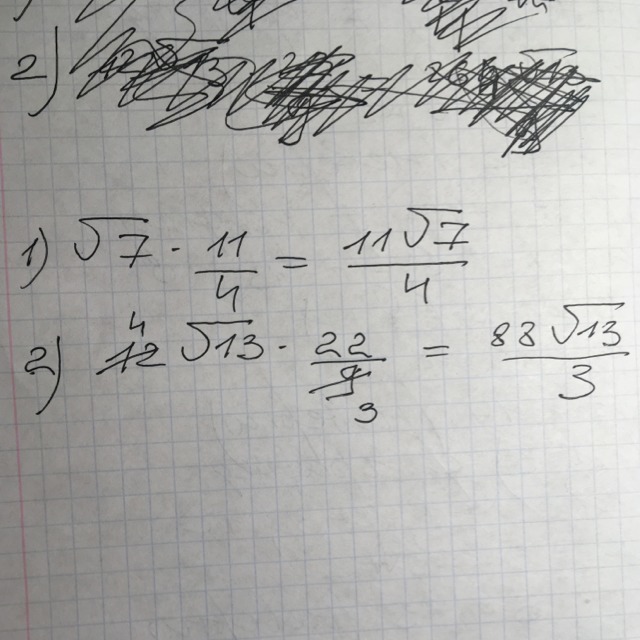 2)
1) √7 · 11/4 = 11√7/4
2) 12 4 √13 · 22/9 3 = 88√13/3